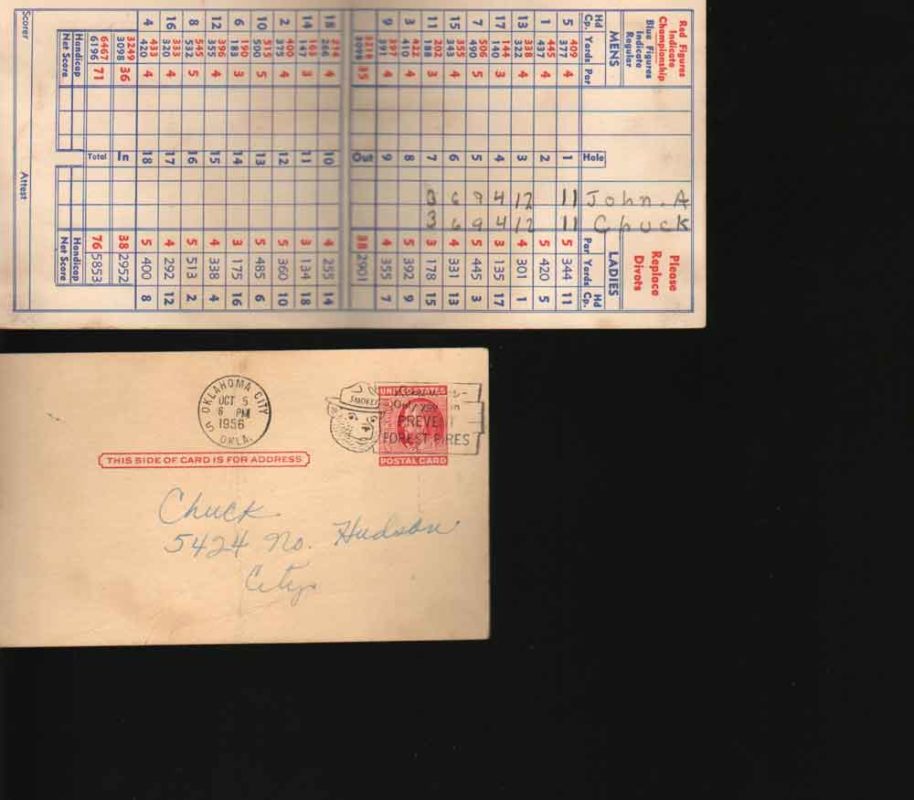 Red Figures Indicate Championship
Blue Figures Indicate Regular
Please Replace Divots
MENS LADIES
Hd Cp. Yards Par Hole John. A Chuck Par Yards Hd Cp.
5 409 377 4 1 11 11 5 344 11
1 445 437 4 2 5 420 5
13 338 322 4 3 12 12 4 301 1
17 140 3 4 4 4 3 135 17
7 506 490 5 5 9 9 5 445 3
15 355 343 4 6 6 6 4 331 13
11 202 188 3 7 3 3 3 178 15
3 422 410 4 8 5 392 9
9 391 4 9 4 355 7
3218 3098 35 Out 38 2901
18 266 4 10 4 255 14
14 163 147 3 11 3 134 18
2 400 375 4 12 5 360 10
10 515 500 5 13 5 485 6
6 190 183 3 14 3 175 16
12 396 355 4 15 4 338 4
8 545 532 5 16 5 513 2
16 333 320 4 17 4 292 12
4 433 420 4 18 5 400 8
3249 3098 36 In 38 2952
6467 6196 71 Total 76 5853
Handicap Handicap
Net Score Net Score
Scorer Attest
OKLAHOMA CITY
OCT 5
6 PM
1956
OKLA.
UNITED STATES
SMOKEY
PREVENT
FOREST FIRES
POSTAL CARD
THIS SIDE OF CARD IS FOR ADDRESS
Chuck
5424 No. Hudson
City